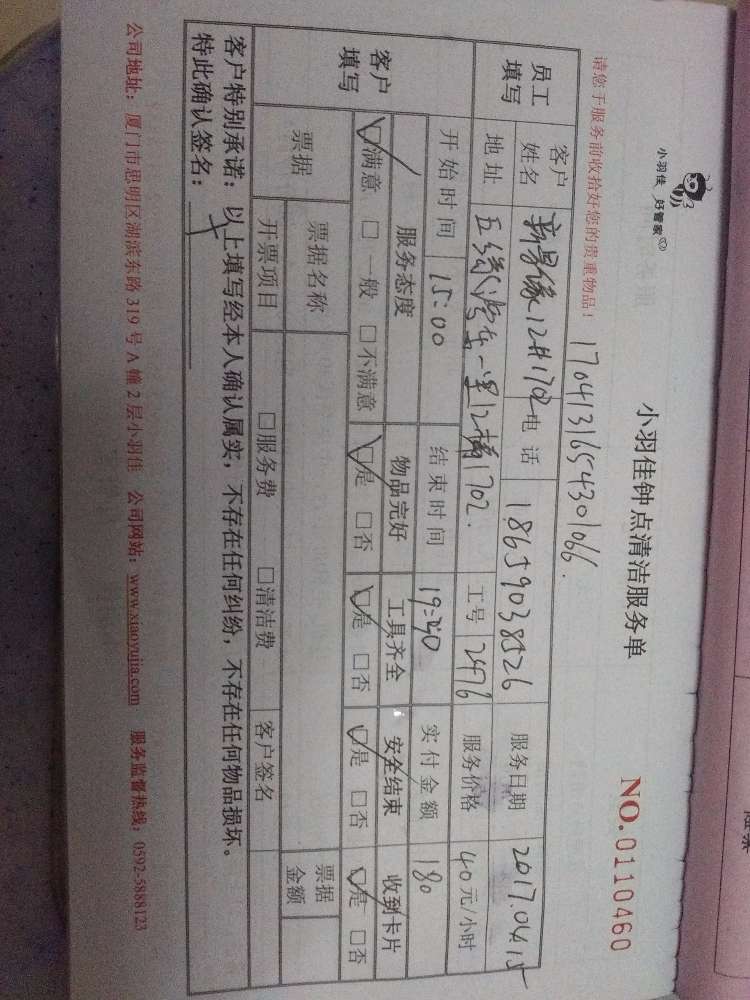 小羽佳 好管家
小羽佳钟点清洁服务单
NO.0110460
请您于服务前收拾好您的贵重物品！
1704131654301066.
员工填写 客户姓名 12#1702 电话 18659038526 服务日期 2017.04.15
地址 五缘湾 一里12楼1702. 工号 2476 服务价格 40元/小时
开始时间 15:00 结束时间 19:30 实付金额 180
客户填写 服务态度 物品完好 工具齐全 安全结束 收到卡片
☑满意 □一般 □不满意 ☑是 □否 ☑是 □否 ☑是 □否 ☑是 □否
票据 票据名称 票据金额
开票项目 □服务费 □清洁费 客户签名
客户特别承诺：以上填写经本人确认属实，不存在任何纠纷，不存在任何物品损坏。
特此确认签名：
公司地址：厦门市思明区湖滨东路319号A幢2层小羽佳 公司网站：www.xiaoyujia.com 服务监督热线：0592-5888123